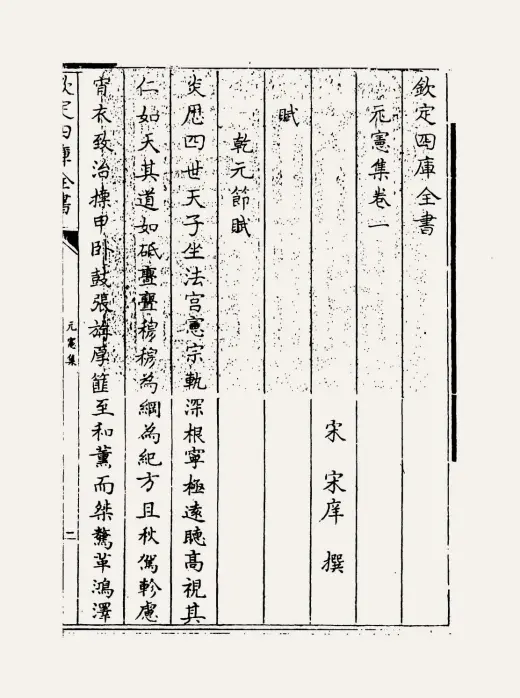 欽定四庫全書
元憲集卷一
宋 宋庠 撰
賦
乾元節賦
炎歴四世天子坐法宫憲宗軌深根寜極逺聴髙視其
仁如天其道如砥亹亹穆穆為綱為紀方且秋駕軫慮
宵衣致治櫜甲卧鼓張旌厚篚至和薫而桀驁革鴻澤
欽定四庫全書
元憲集